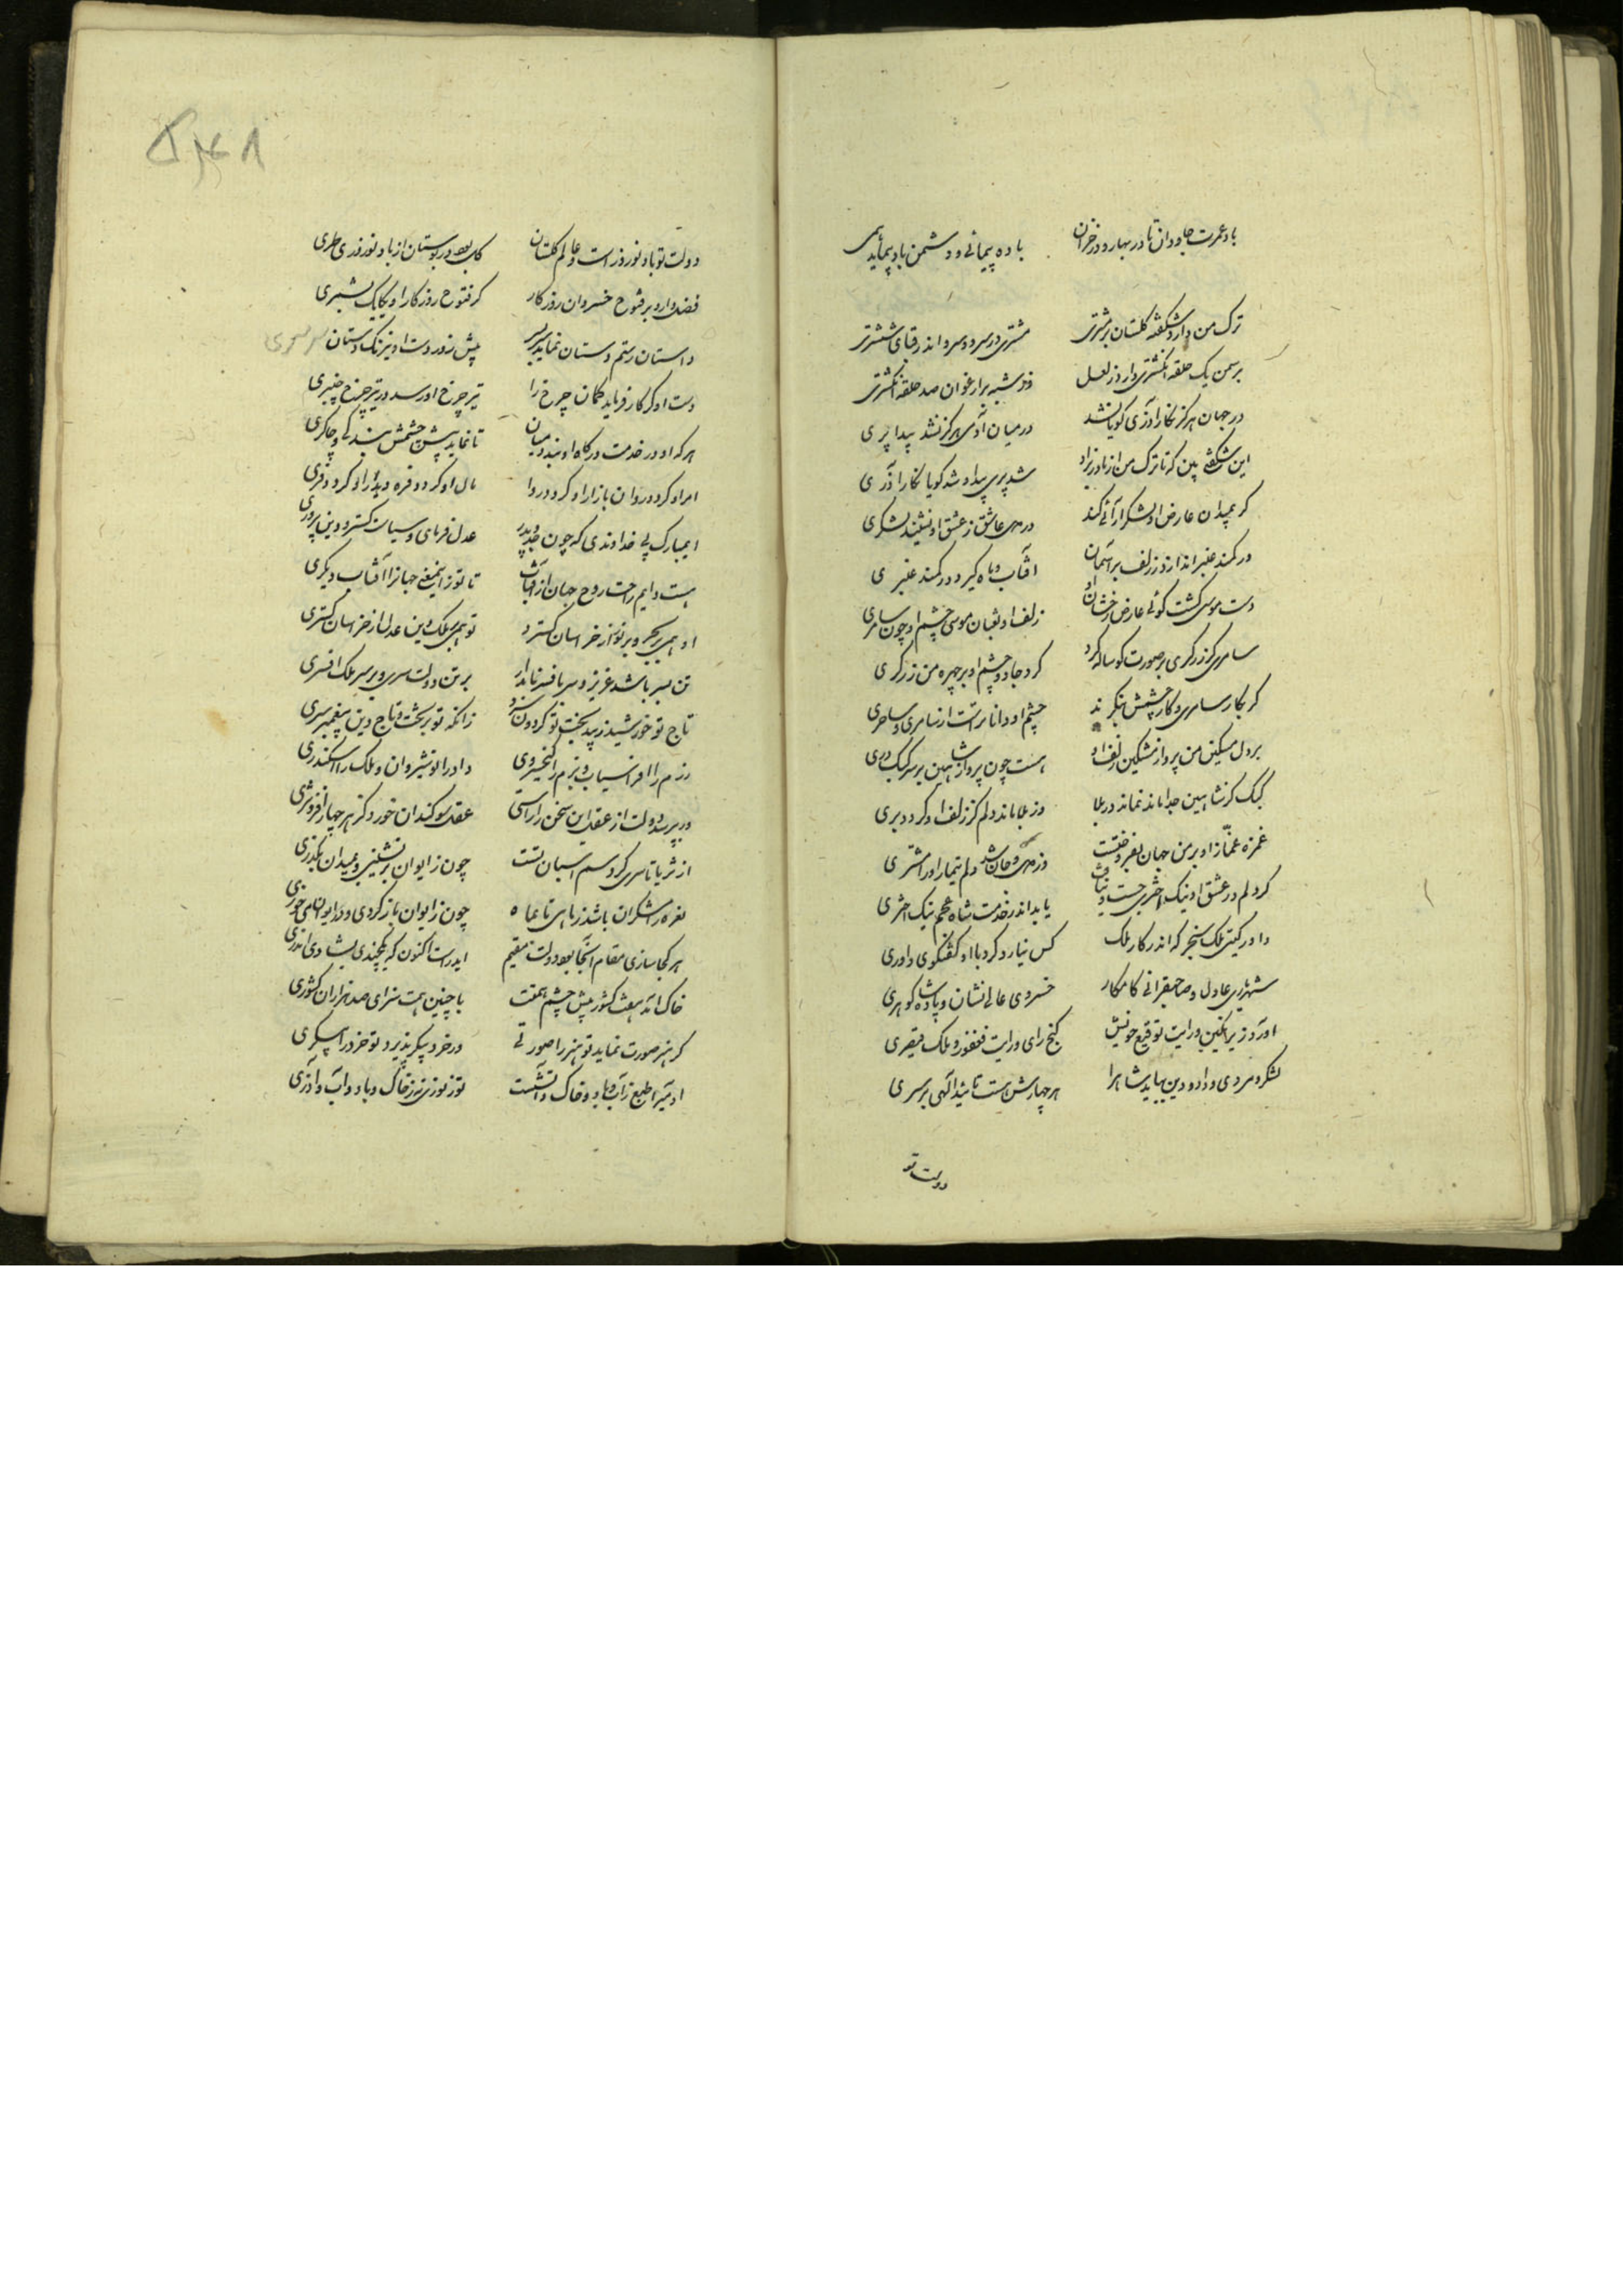 باد عمرت جاودان تا در بهار و در خزان باده پیمائی و دشمن باد پیماید همی
ترک من دارد شکفته گلستان بر مشتری مشتری در سرو و سرو اندر قبای ششتری
بر سمن یک حلقه انگشتری دارد ز لعل وز شبه بر ارغوان صد حلقه انگشتری
در جهان هرگز نگار آزری گویا نشد در میان آدمی هرگز نشد پیدا پری
این شگفتی بین که تا ترک من از مادر بزاد شد پری پیدا و شد گویا نگار آذری
گر بمیدان عارض او لشکر آرائی کند در صف عاشق ز عشق او نشیند لشکری
در کمند عنبر اندازد ز زلف بر آسمان آفتاب و ماه گیرد در کمند عنبری
دست موسی گشت گوئی عارض رخشان او زلف او ثعبان موسی چشم او چون سامری
سامری گر زرگری بر صورت گوساله کرد کرد جادو چشم او بر چهره من زرگری
گر بکار سامری و کار چشمش بنگرند چشم او داناتر است از سامری در ساحری
بر دل مسکین من پرواز مشکین زلف او هست چون پرواز شاهین بر سر کبک دری
کبک کز شاهین جدا ماند نماند در بلا در بلا ماند دلم کز زلف او گردد بری
غمزه غماز او بر من جهان بفروختست دلم تیمار او را مشتری
گر دلم در عشق او نیک اختری جست و نیافت یابد اندر خدمت شاه عجم نیک اختری
داور گیتی ملک سنجر که اندر کار ملک کس نیارد کرد با او گفتگوی داوری
شهریری عادل و صاحبقرانی کامکار خسروی عالی نشان و پادشاه گوهری
آورد زیر نگین و رایت توقیع خویش گنج رای و رایت فغفور و ملک قیصری
لشکر و مردی و داد و دین بباید شاه را هر چهارش هست تائید الهی بر سری
دولت تو
۵۴۸
دولت تو باد نوروز است و عالم گلستان کی بود در بوستان از باد نوروزی طری
فضل دارد بر فتوح خسروان روزگار گر فتوح روزگار او یکایک بشمری
داستان رستم دستان نماید سربسر پیش زور دست او نیرنگ و دستان سرسری
دست او گر کار فرماید کمان چرخ را تیر چرخ او رسد در تیر چرخ چنبری
هر که او در خدمت درگاه او بندد میان تا نماید پیش چشمش بندگی و چاکری
امر او گردد روان بازار او گردد روا مال او گردد و فره دیدار او گردد فری
ای مبارک پی خداوندی که چون جد و پدر عدل فرمای و سیاست گستر و دین پروری
هست دایم راحت روح جهان از آفتاب تا تو زائی نیغ جهانرا آفتاب دیگری
او همی بر بحر و بر نور از خراسان گسترد تو همی بر ملک و دین عدل از خراسان گستری
تن بسر باشد عزیز و سر بافسر نامدار بر تن دولت سری و بر سر ملک افسری
تاج تو خورشید زیبد تخت تو گردون سزد زانکه تو بر تخت و تاج دین پیغمبر سری
رزم را افراسیاب و بزم را کیخسروی داد را نوشیروان و ملک را اسکندری
ور بپرسد دولت از عقل این سخن را راستی عقل سوگند آن خورد کز هر چهار افزونتری
از ثریا تا سری گرد سم اسبان تست چون ز ایوان بر نشینی و بمیدان بگذری
نعره رامشگران باشد ز ماهی تا بماه چون ز ایوان باز گردی و در ایوان می خوری
هر کجا سازی مقام آنجا بود دولت مقیم ایدر است اکنون که یکچندی بشادی ایدری
خاک آمد هفت کشور پیش چشم همتت با چنین همت سزای صد هزاران کشوری
گر هنر صورت نماید تو هنر را صورتی ور خرد پیکر پذیرد تو خرد را پیکری
آدمی را طبع از آب و باد و خاک و آتشست تو ز نوری نه ز خاک و باد و آب و آذری